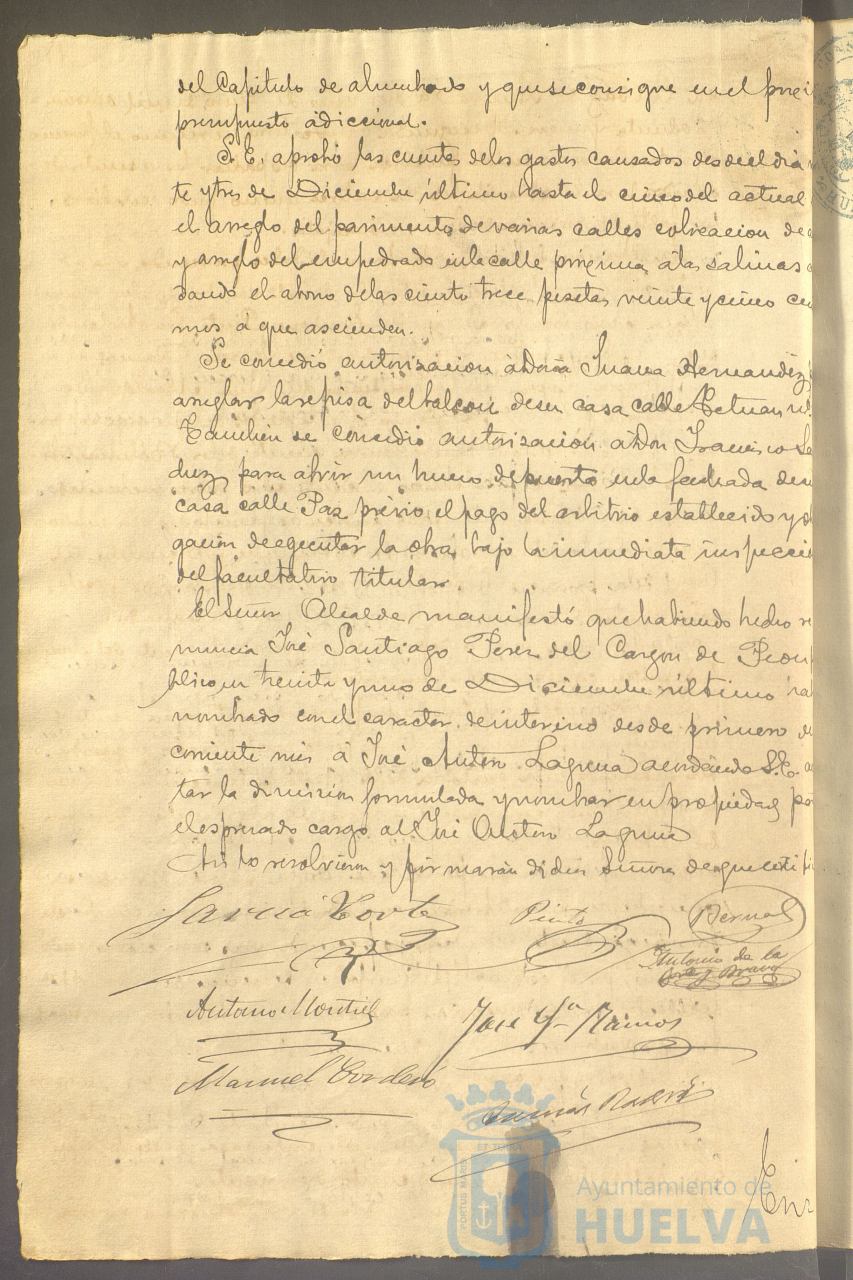 del Capitulo de alumbrado y que se consigne en el proxi
presupuesto adiccional.
S. E. aprobó las cuentas de los gastos causados desde el dia
te y tres de Diciembre último hasta el cinco del actual
el arreglo del pavimento de varias calles colocacion de
y arreglo del empedrado en la calle próxima á las Salinas
dando el abono de las ciento trece pesetas veinte y cinco cen
mos á que ascienden.
Se concedió autorizacion á Doña Juana Hernandez
arreglar la repisa del balcon de su casa calle Tetuan nº
Tambien se concedió autorizacion á Don Francisco
dez para abrir un hueco de puerta en la fachada de su
casa calle Paz prévio el pago del arbitrio establecido y
gacion de egecutar la obra bajo la inmediata inspecci
del facultativo titular.
El Señor Alcalde manifestó que habiendo hecho re
nuncia José Santiago Perez del Cargon de Peon
blico en treinta y uno de Diciembre último ha
nombrado con el caracter de interino desde primero de
corriente mes á José Anton Laguna acordando S. E.
tar la dimision formulada y nombrar en propiedad pa
el espresado cargo al José Anton Laguna
Asi lo resolvieron y firmaran dichos Señores de que certifi
Garcia Cortes Pinto Bernal
Antonio de la
Corte y Bravo
Antonio Montiel José Mª Ramos
Manuel Cordero
ET TERRA
PORTUS MARIS
Ayuntamiento de
HUELVA